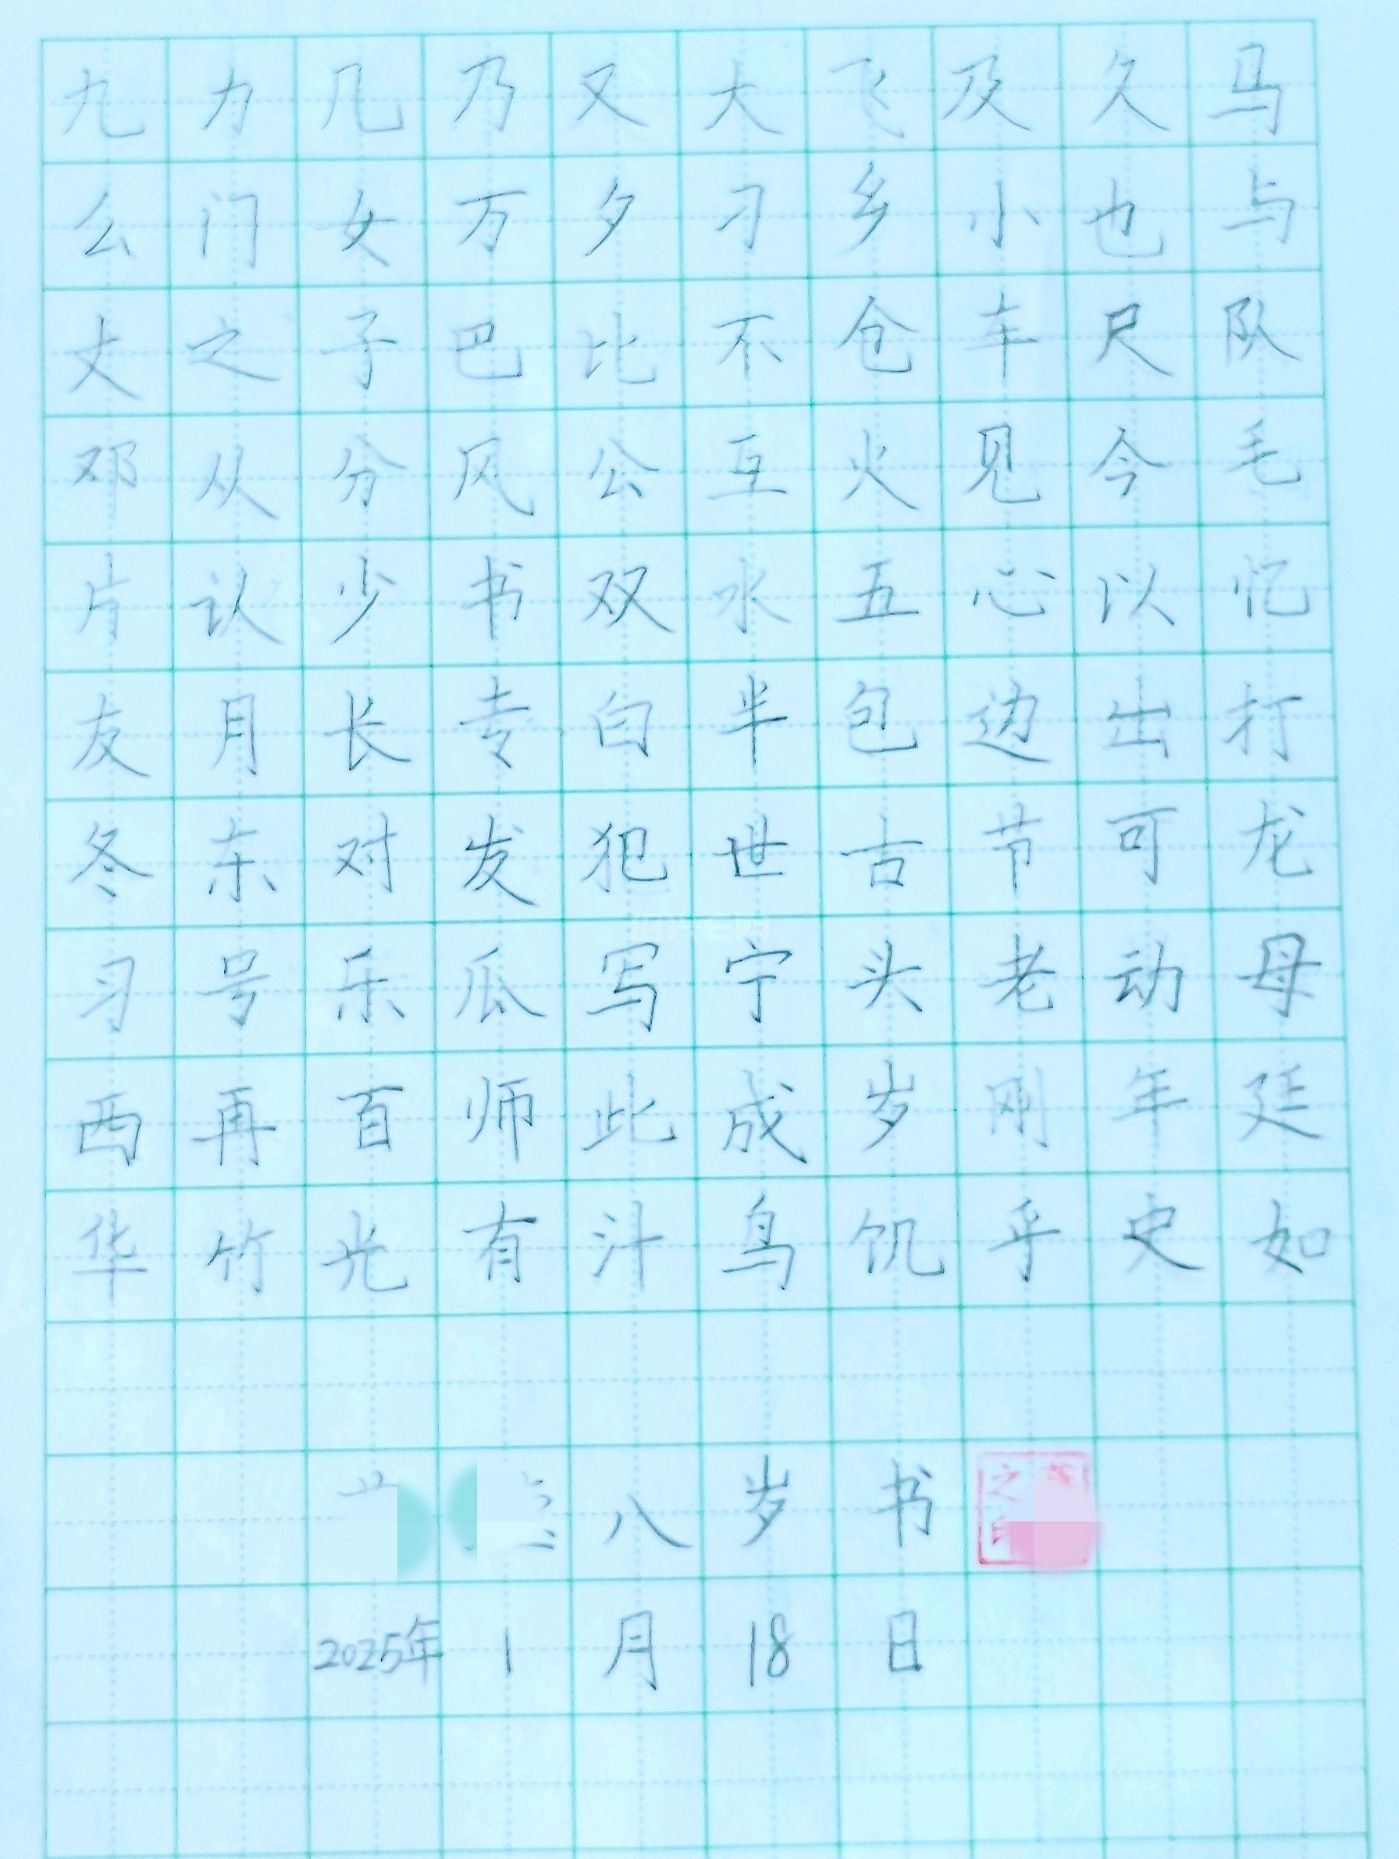 九力几乃又大飞及久马
么门女万夕习乡小也与
丈之子巴比不仓车尺队
邓从分风公互火见今毛
片认少书双水五心以忆
友月长专白半包边出打
冬东对发犯世古节可龙
习号乐瓜写宁头老动母
西再百师此成岁刚年廷
华竹光有汁鸟饥乎史如
八岁书
之印
2025年1月18日